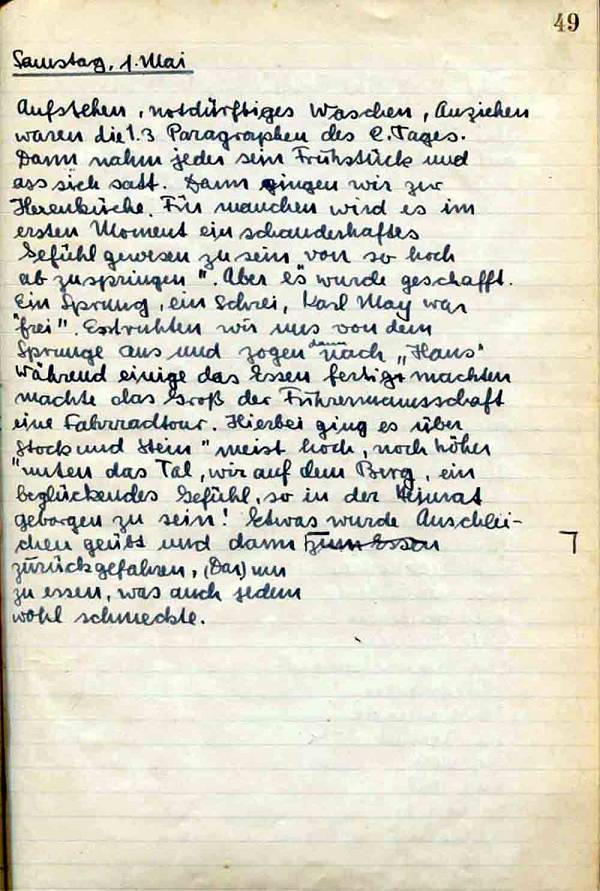 49
Samstag, 1. Mai
Aufstehen, notdürftiges Waschen, Anziehen
waren die 1. 3 Paragraphen des 2. Tages.
Dann nahm jeder sein Frühstück und
ass sich satt. Dann gingen wir zur
Hexenküche. Für manchen wird es im
ersten Moment ein schauderhaftes
Gefühl gewesen zu sein von so hoch
ab zuspringen". Aber es" wurde geschafft.
Ein Sprung, ein Schrei, Karl May war
"frei". Erst ruhten wir uns von dem
Sprunge aus und zogen dann nach „Haus"
Während einige das Essen fertig machten
machte das Groß der Führermannschaft
eine Fahrradtour. Hierbei ging es über
Stock und Stein" meist hoch, noch höher
"unten das Tal, wir auf dem Berg, ein
beglückendes Gefühl, so in der Heimat
geborgen zu sein! Etwas wurde Anschlei-
chen geübt und dann zum Essen
zurückgefahren, (Das) um
zu essen, was auch jedem
wohl schmeckte.